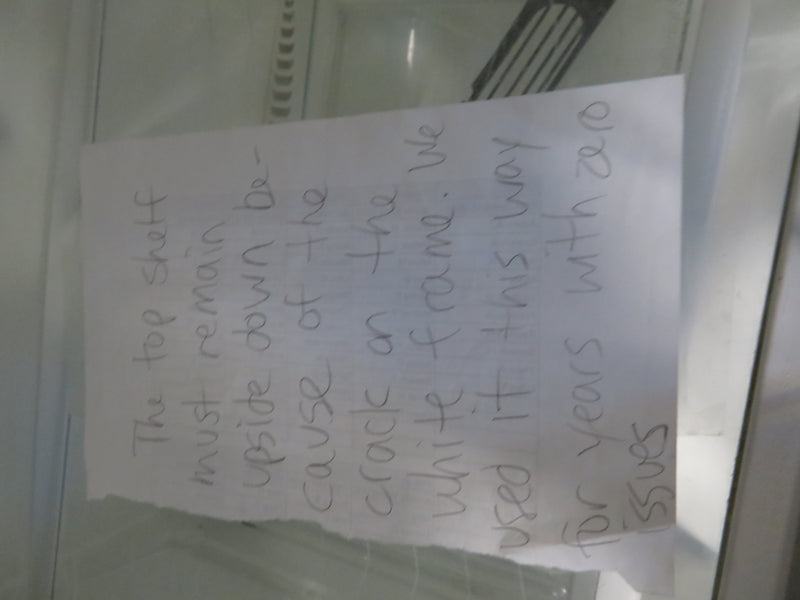 The top shelf
must remain
upside down be-
cause of the
crack on the
white frame. We
used it this way
for years with zero
issues